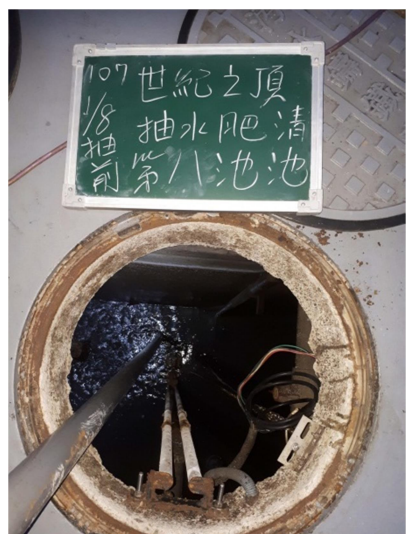 107
1/8
抽
前
世紀之頂
抽水肥清
第八池池